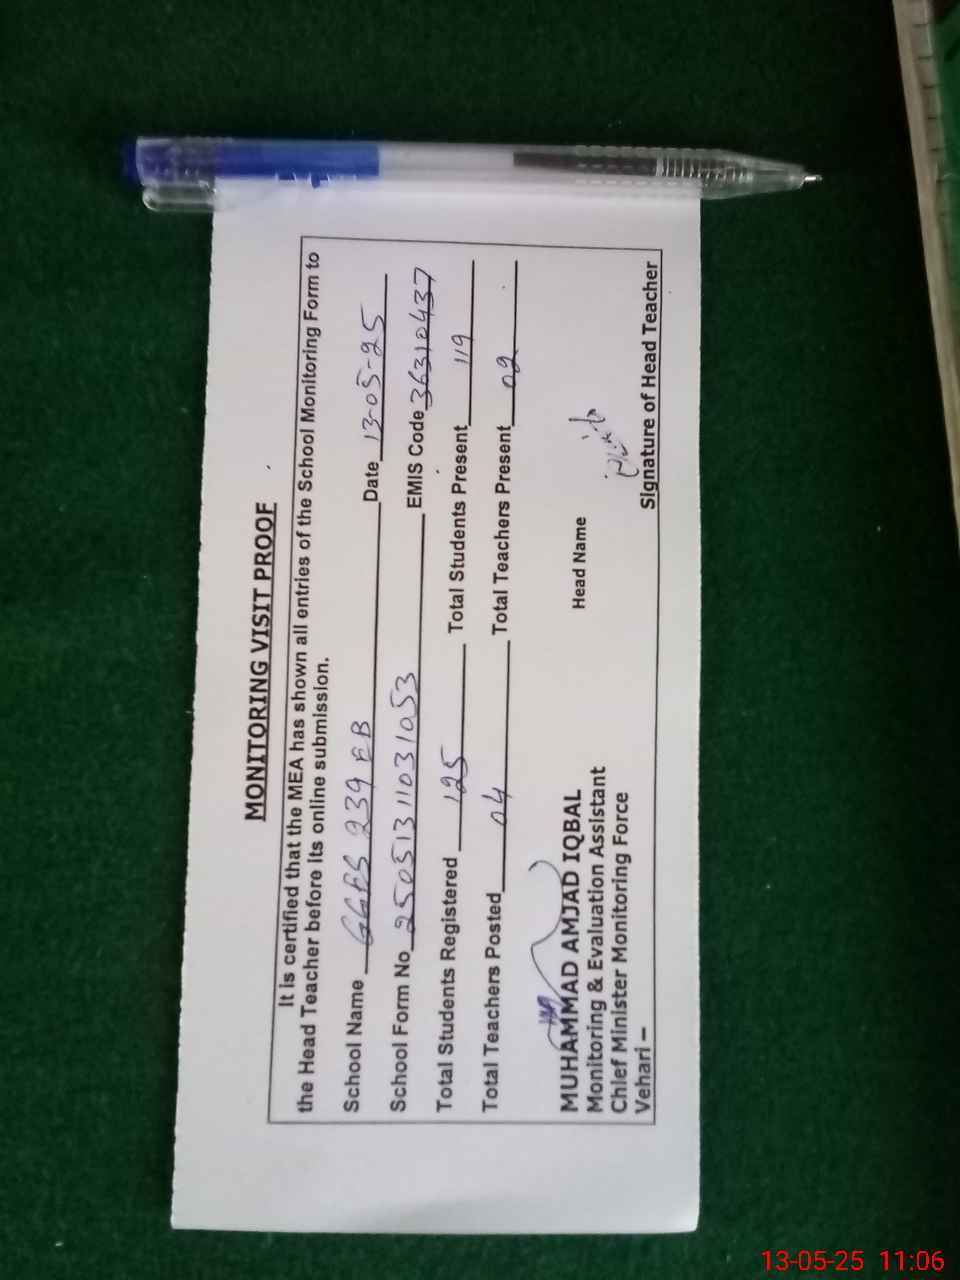 MONITORING VISIT PROOF
It is certified that the MEA has shown all entries of the School Monitoring Form to
the Head Teacher before its online submission.
School Name GGES 239 EB Date 13-05-25
School Form No 2505131031053 EMIS Code 36310437
Total Students Registered 125 Total Students Present 119
Total Teachers Posted 04 Total Teachers Present 02
Head Name
MUHAMMAD AMJAD IQBAL
Monitoring & Evaluation Assistant
Chief Minister Monitoring Force
Vehari –
Signature of Head Teacher
13-05-25 11:06